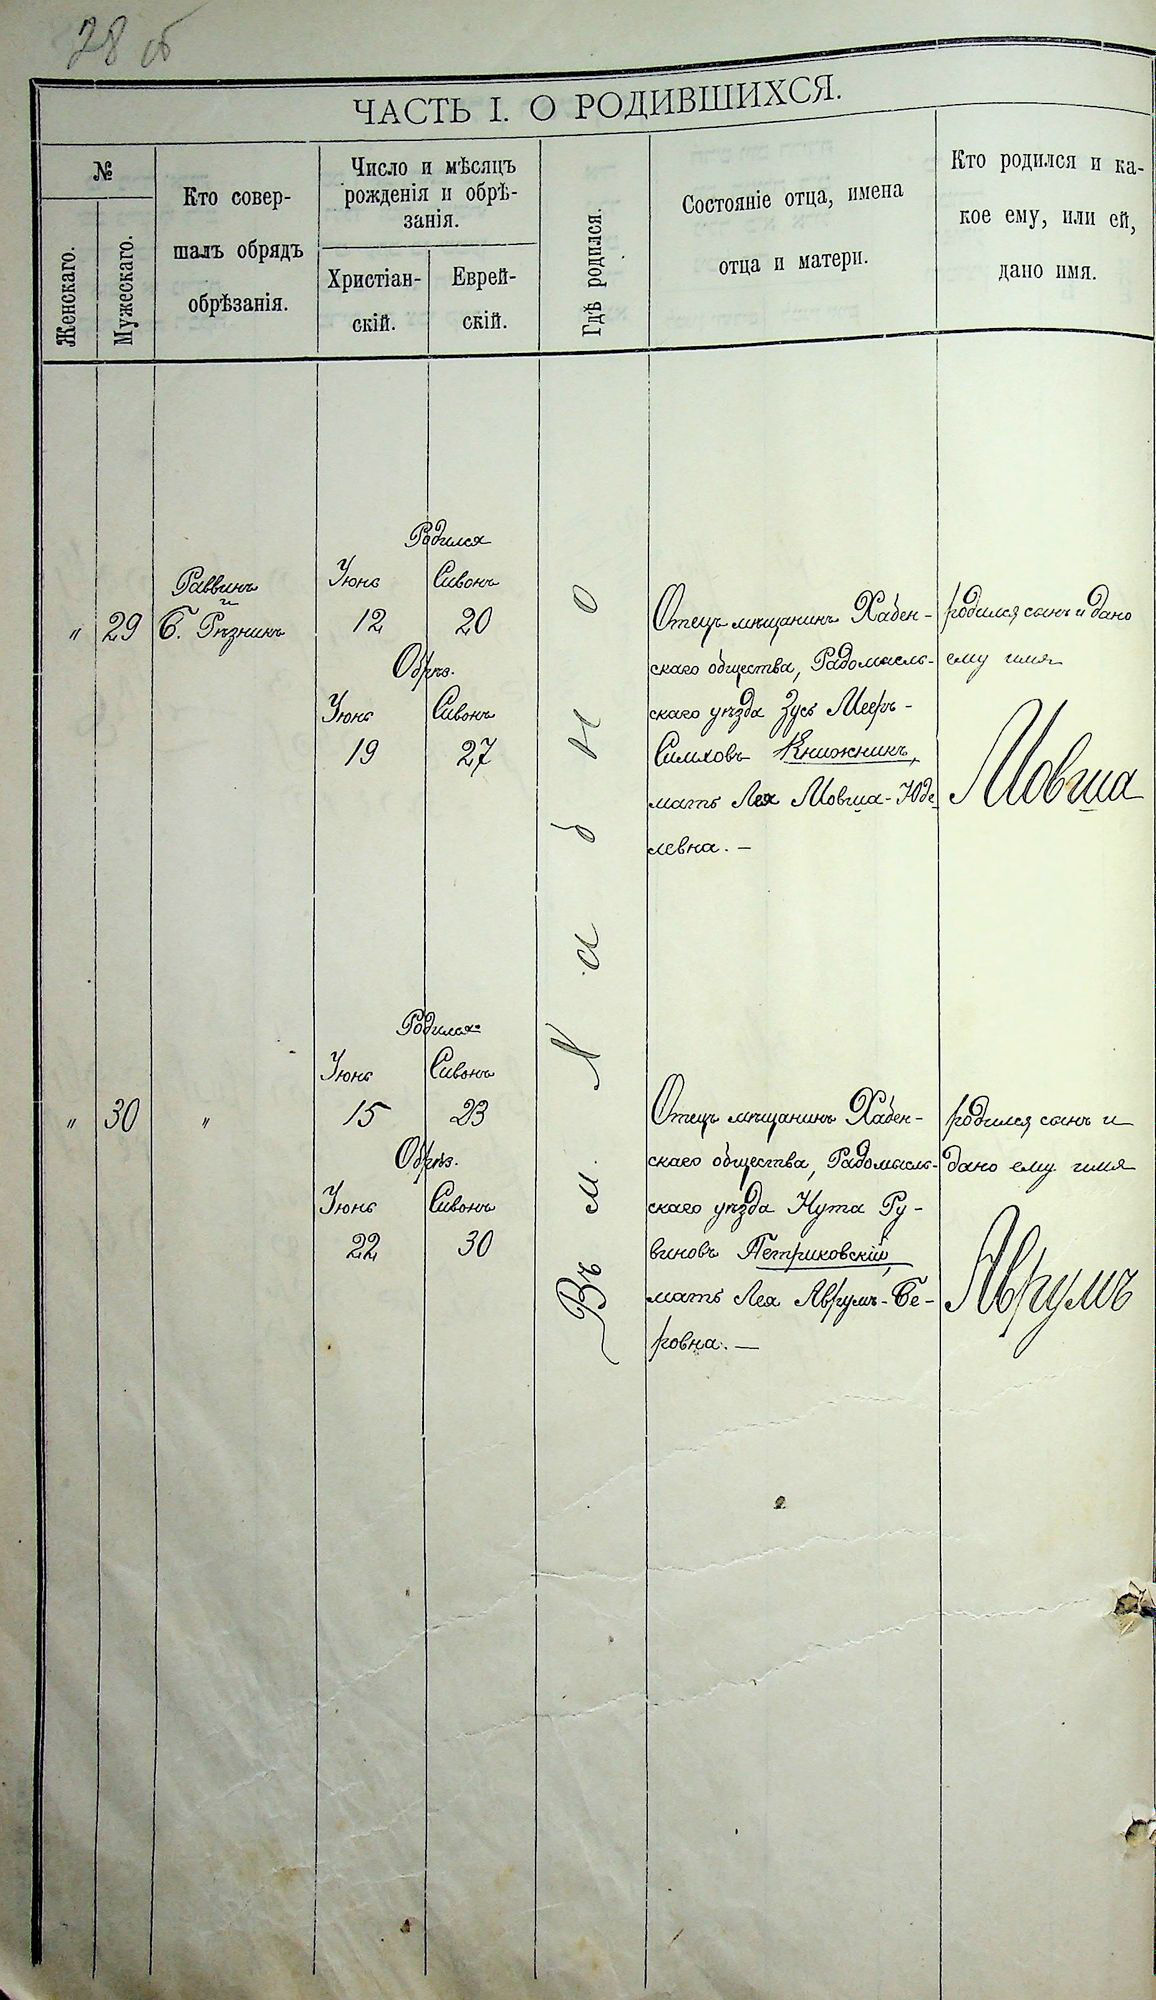 28 об
ЧАСТЬ I. О РОДИВШИХСЯ.
№
Женскаго.
Мужескаго.
Кто совер-
шалъ обрядъ
обрѣзанія.
Число и мѣсяцъ
рожденія и обрѣ-
занія.
Христіан-
скій.
Еврей-
скій.
Гдѣ родился.
Состояніе отца, имена
отца и матери.
Кто родился и ка-
кое ему, или ей,
дано имя.
"
29
Раввинъ
и
Б. Рѣзникъ
Родился
Іюнь Сивонъ
12 20
Обрѣз.
Іюнь Сивонъ
19 27
Въ м. Хабно
Отецъ мѣщанинъ Хабен-
скаго общества, Радомысль-
скаго уѣзда Зусь Мееръ-
Симховъ Книжникъ,
мать Лея Мовша-Юде-
левна. —
родился сынъ и дано
ему имя
Мовша
"
30
"
Родился
Іюнь Сивонъ
15 23
Обрѣз.
Іюнь Сивонъ
22 30
Отецъ мѣщанинъ Хабен-
скаго общества, Радомысль-
скаго уѣзда Нута Ру-
виновъ Петриковскій,
мать Лея Аврумъ-Бе-
ровна. —
родился сынъ и
дано ему имя
Аврумъ